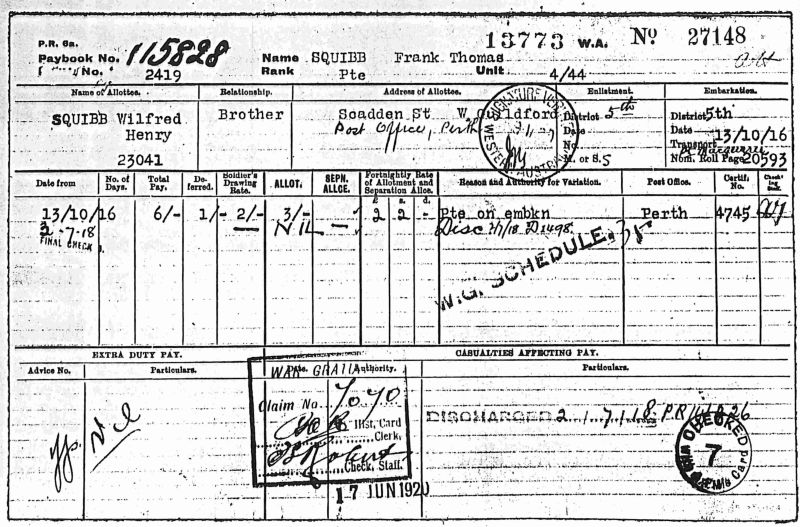 13773 W.A. No 27148
P.R. 6a.
Paybook No. 115828 Name SQUIBB Frank Thomas
No. 2419 Rank Pte Unit 4/44
Name of Allottee. Relationship. Address of Allottee. Enlistment. Embarkation.
SQUIBB Wilfred Henry Brother Soadden St W. Guildford District 5th District 5th
Post Office, Perth Date Date 13/10/16
23041 No. Transport
M. or S. S Nom. Roll Page 20593
SIGNATURE
WESTERN AUSTRALIA
Date from No. of Days. Total Pay. De-ferred. Soldier's Drawing Rate. ALLOT. SEPN. ALLCE. Fortnightly Rate of Allotment and Separation Allce. Reason and Authority for Variation. Post Office. Certif. No. Check-ing
£ s. d.
13/10/16 6/- 1/- 2/- 3/- 2 2 - Pte on embkn Perth 4745
2-7-18 — NIL — Disc 2/7/18 D1498.
FINAL CHECK
W.G. SCHEDULE.
EXTRA DUTY PAY. CASUALTIES AFFECTING PAY.
Advice No. Particulars. Date. Authority. Particulars.
WAR GRAT
Claim No 7070
Hist. Card
Clerk,
Check. Staff.
Nil
DISCHARGED 2/7/18 PR
17 JUN 1920
CHECKED
7
Card